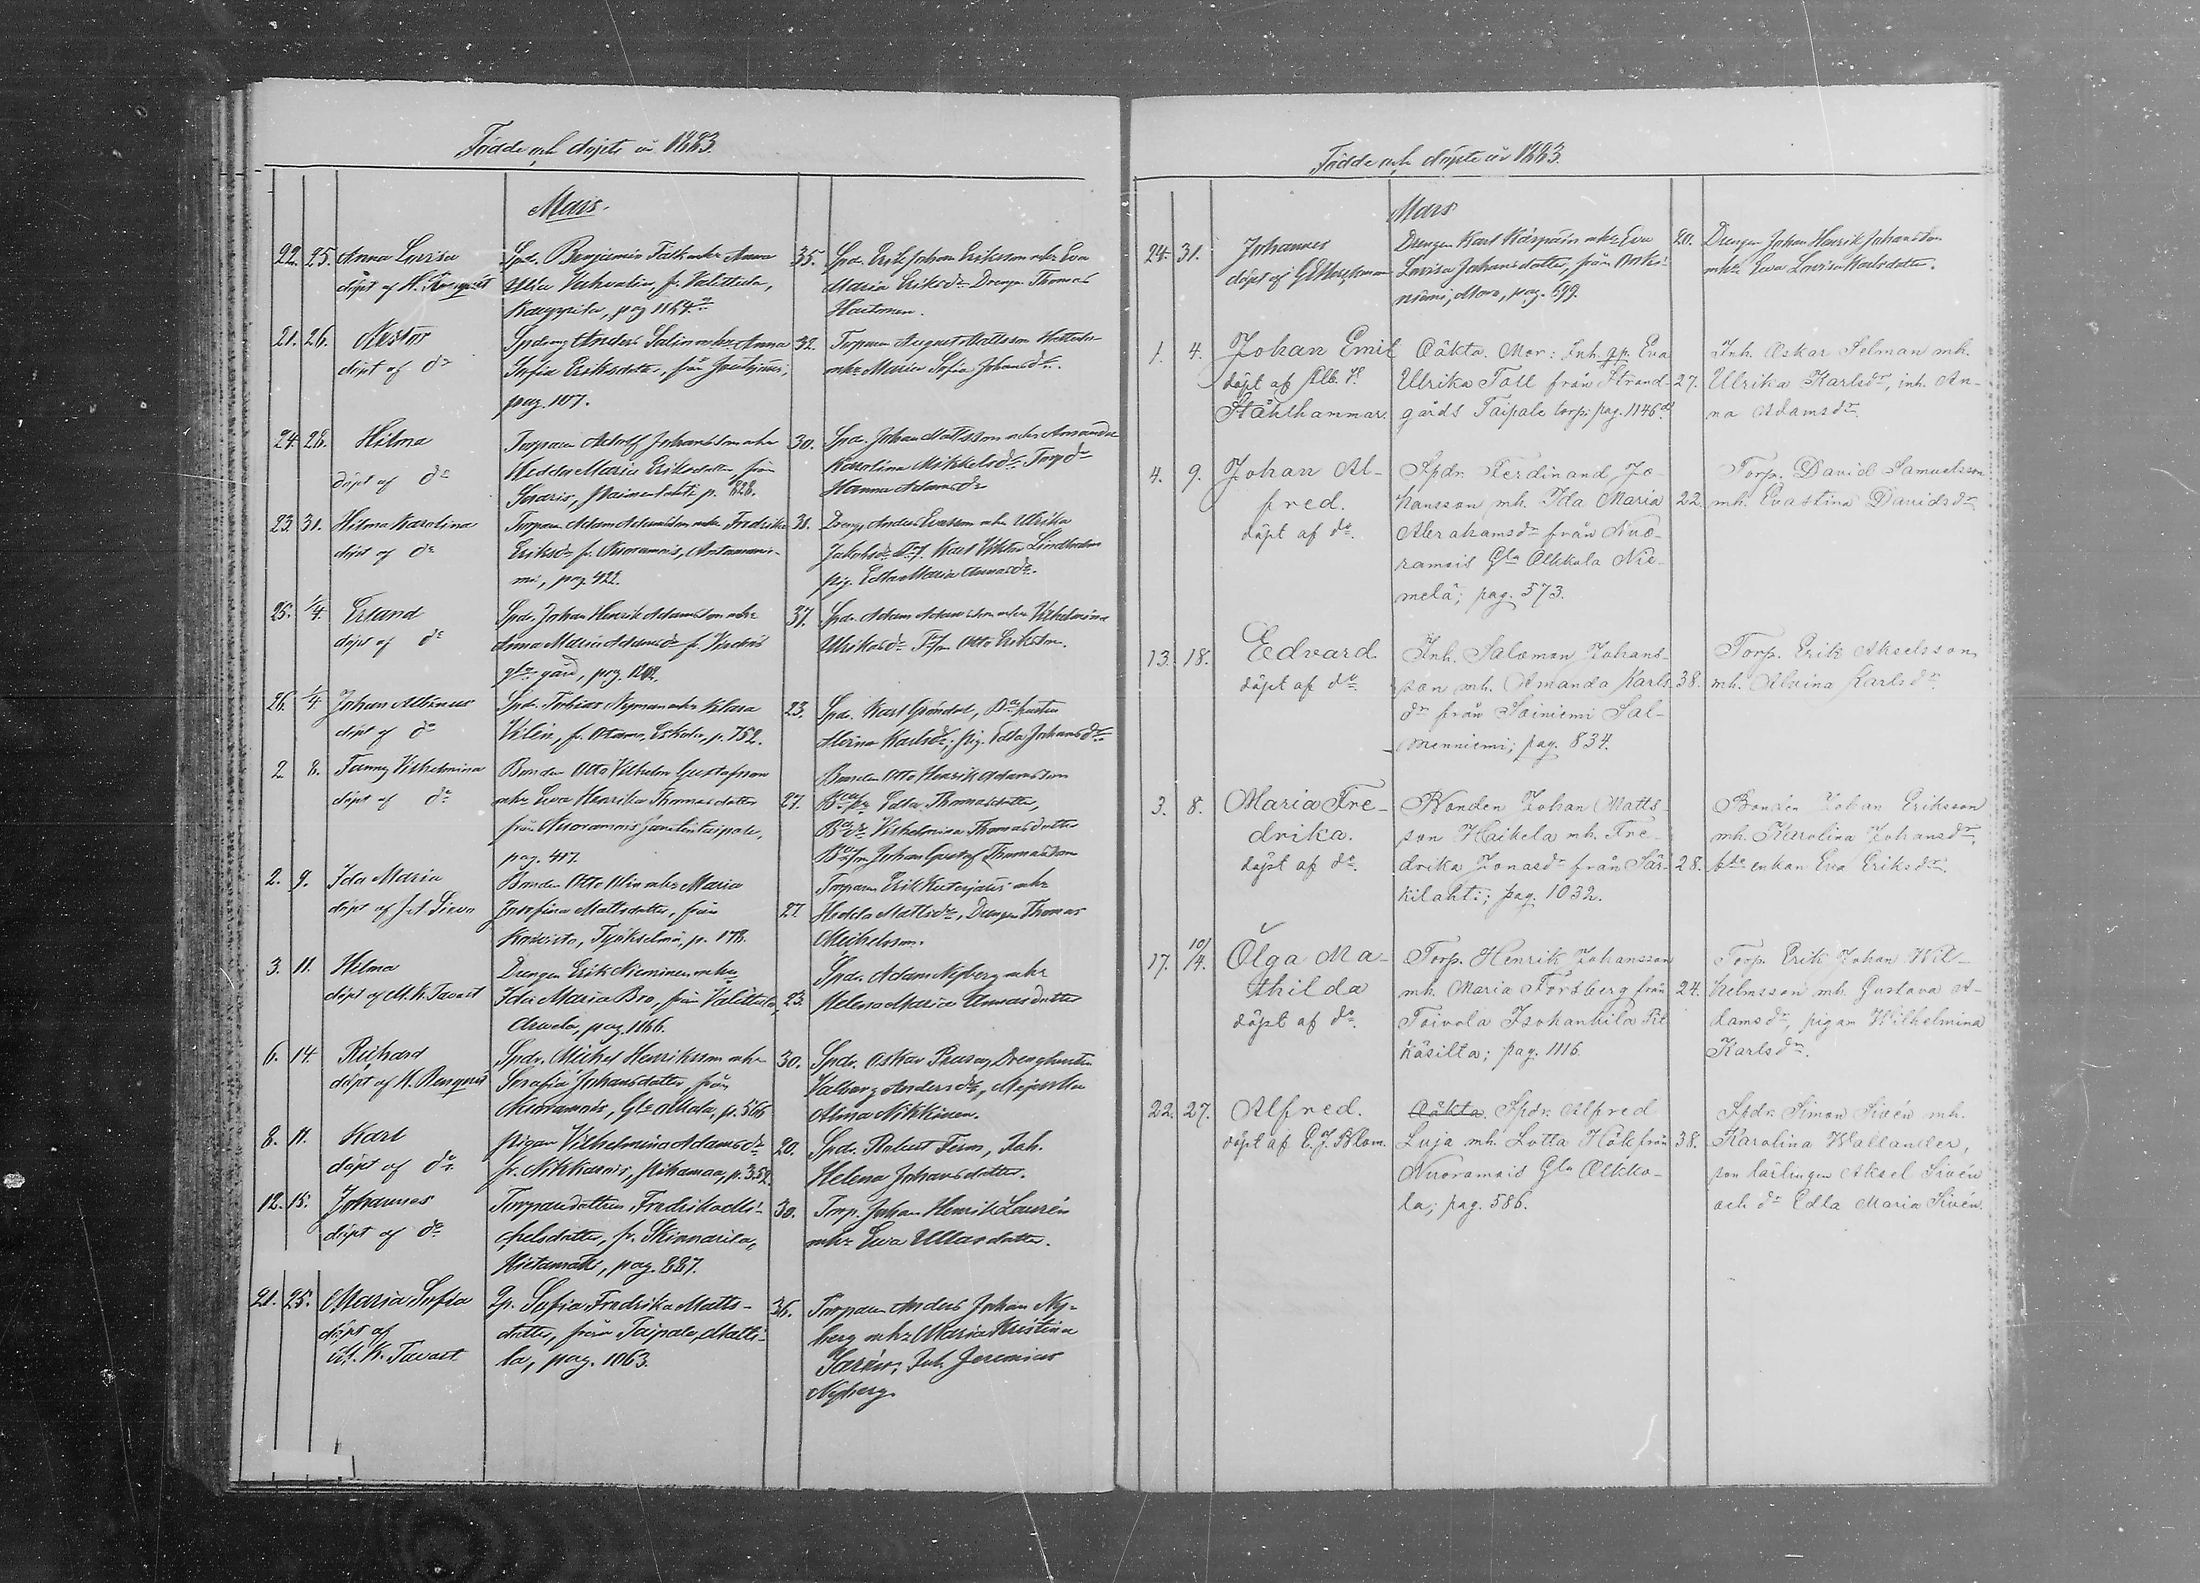 Födde och döpte år 1883.
Mars.
22. 25. Anna Lovisa
döpt af K.
Spdr. Benjamin Falk mhu Anna
fr. Valittula,
pag 1164
35. Spdr. Erik Johan Eriksson mhu Eva
Maria Eriksdr Drengen Thomas
Hautonen.
21. 26. Nestor
döpt af do
Anders Salin mhu Anna
Sofia Eriksdotter, från
pag. 107.
32. Torparen August Mattsson
mhu Maria Sofia Johansdr.
24 28. Hilma
döpt af do
Torparen Adolf Johansson mhu
Hedda Maria Eriksdotter från
p. 828.
30. Spdr. Johan Mattsson mhu Amanda
Karolina Mikkelsdr. Torpdr
Hanna Adamsdr
23. 31. Hilma Karolina
döpt af do
Torparen Adam Adamsson mhu Fredrika
Eriksdr fr. Nuoramois, Antinnie-
mi, pag. 422.
31. Dreng. Anders Evertsson mhu Ulrika
Jakobsdr. Karl Viktor Lindholm
pig. Edla Maria Annasdr.
25. 1/4. Erland
döpt af do
Spdr. Johan Henrik Adamsson mhu
Anna Maria Adamsdr fr.
gård, pag.
37. Spdr. Adam Adamsson mhu Vilhelmina
Ulrikasdr Otto Eriksson.
26. 1/4 Johan Albinus
döpt af do
Spdr. Tobias Nyman mhu Klara
Vilén, fr. Eskola, p. 752.
23. Spdr. Karl Gröndal,
Alvina Karlsdr. pig. Edla Johansdr.
2 8. Fanny Vilhelmina
döpt af do
Bonden Otto Vilhelm Gustafsson
mhu Eva Henrika Thomasdotter
från Nuoramois
pag. 417.
27. Bonden Otto Henrik Adamsson
Edla Thomasdotter,
Vilhelmina Thomasdotter
Johan Gustaf Thomasson
2. 9. Ida Maria
döpt af
Bonden Otto mhu Maria
Josefina Mattsdotter, från
Koivisto, p. 178.
27. Torparen Erik mhu
Hedda Mattsdr, Drengen Thomas
Mickelsson.
3. 11. Hilma
döpt af M. K. Tavast
Drengen Erik Nieminen mhu
Ida Maria Bro, från Valittula,
pag. 1166.
23. Spdr. Adam Nyberg mhu
Helena Maria Annasdotter
6. 14 Richard
döpt af K.
Spdr. Michel Henriksson mhu
Serafia Johansdotter från
Nuoramois, Gla p. 566
30. Spdr. Oskar
Valborg Andersdr, Mejerskan
Alma Nikkinen.
8. 11. Karl
döpt af do.
pigan Vilhelmina Adamsdr
fr. p. 352
20. Spdr. Robert
Helena Johansdotter.
12. 15. Johannes
döpt af do
Torpardottern Fredrika Mi-
chelsdotter, fr. Skinnarila,
pag. 887.
30. Torp. Johan Henrik Laurén
mhu Eva Ullasdotter.
21. 25. Maria Sofia
döpt af
M. K. Tavast
Ip. Sofia Fredrika Matts-
dotter, från Taipale, Matti-
la, pag. 1063.
36. Torparen Anders Johan Ny-
berg mhu Maria Kristina
Inh. Jeremias
Nyberg.
Födde och döpte år 1883.
Mars
24. 31. Johannes
döpt af
Drengen Karl mhu Eva
Lovisa Johansdotter, från Onki-
niemi, pag. 699.
20. Drengen Johan Henrik Johansson
mhu Eva Lovisa Karlsdotter.
1. 4. Johan Emil
döpt af Alb. V.
Stålhammar.
Oäkta. Mor: Inh. qp. Eva
Ulrika Toll från Strand-
gårds Taipale torp; pag. 1146
27. Inh. Oskar Selman mh.
Ulrika Karlsdr, inh. An-
na Adamsdr
4. 9. Johan Al-
fred.
döpt af do.
Spdr. Ferdinand Jo-
hansson mh. Ida Maria
Abrahamsdr från Nuo-
ramois Gla Olkkola Nie-
melä; pag. 573.
22. Torp. David Samuelsson
mh. Evastina Davidsdr
13. 18. Edvard
döpt af do
Inh. Salomon Johans-
son mh. Amanda Karls
dr från Soiniemi Sal-
menniemi; pag. 834.
38. Torp. Erik Akselsson
mh. Alvina Karlsdr
3. 8. Maria Fre-
drika.
döpt af do.
Bonden Johan Matts-
son Haikela mh. Fre-
drika Jonasdr från Sär-
kilahti; pag. 1032.
28. Bonden Johan Eriksson
mh. Karolina Johansdr,
bde enkan Eva Eriksdr
17. 10/4. Olga Ma-
thilda
döpt af do.
Torp. Henrik Johansson
mh. Maria Forsberg från
Toivola Isohankila Pit
käsilta; pag. 1116.
24. Torp. Erik Johan Wil-
helmsson mh. Gustava A-
damsdr, pigan Wilhelmina
Karlsdr.
22. 27. Alfred.
döpt af E. J. Blom.
Oäkta. Spdr. Alfred
Luja mh. Lotta Hök från
Nuoramois Gla Olkko-
la; pag. 586.
38. Spdr. Simon Sivén mh.
Karolina Wallander,
son lärlingen Aksel Sivén
och dr Edla Maria Sivén.